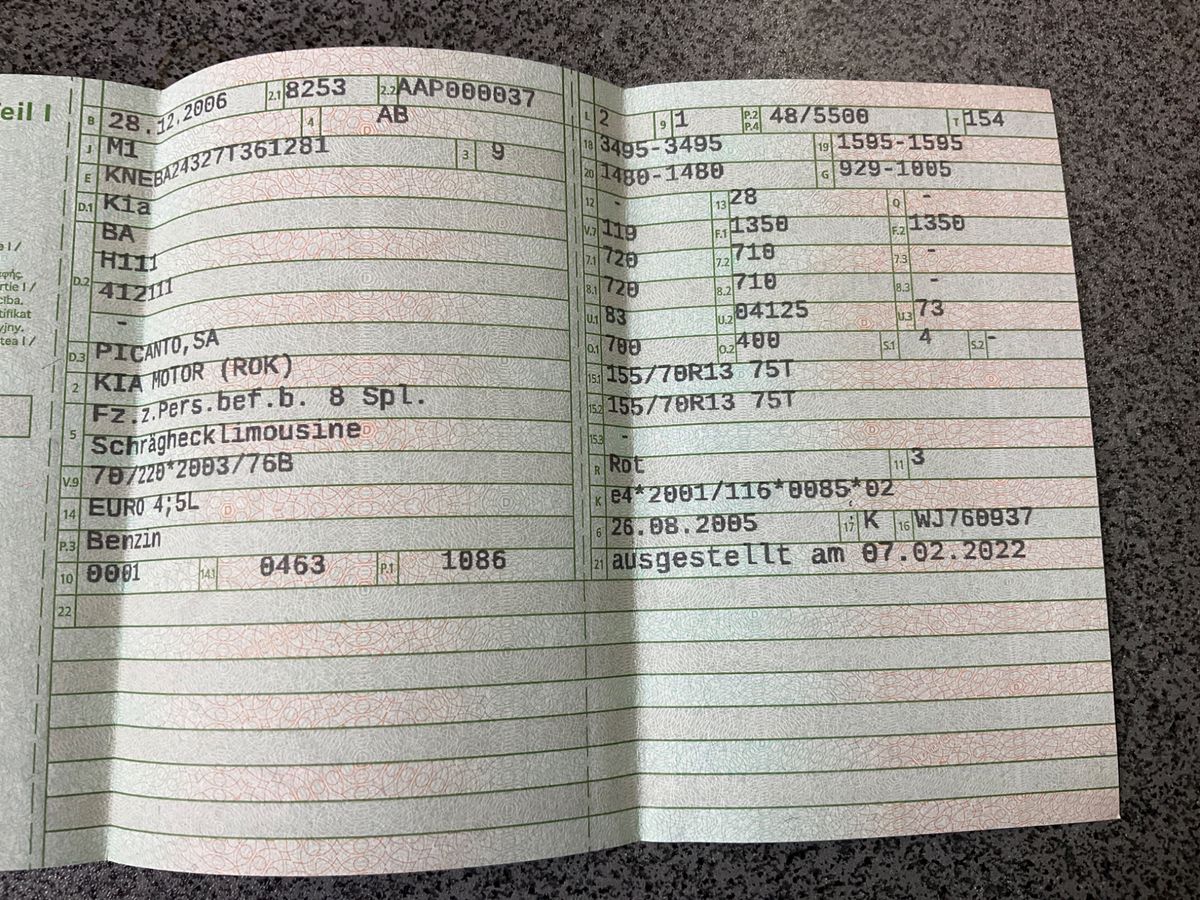 eil I
B 28.12.2006 2.1 8253 2.2 AAP000037
J M1 4 AB
E KNEBA24327T361281 3 9
D.1 Kia
BA
D.2 H111
412111
-
D.3 PICANTO,SA
2 KIA MOTOR (ROK)
5 Fz.z.Pers.bef.b. 8 Spl.
Schräghecklimousine
V.9 70/220*2003/76B
14 EURO 4;5L
P.3 Benzin
10 0001 14.1 0463 P.1 1086
22
L 2 9 1 P.2 P.4 48/5500 T 154
18 3495-3495 19 1595-1595
20 1480-1480 G 929-1005
12 - 13 28 Q -
V.7 119 F.1 1350 F.2 1350
7.1 720 7.2 710 7.3 -
8.1 720 8.2 710 8.3 -
U.1 83 U.2 04125 U.3 73
O.1 700 O.2 400 S.1 4 S.2 -
15.1 155/70R13 75T
15.2 155/70R13 75T
15.3 -
R Rot 11 3
K e4*2001/116*0085*02
6 26.08.2005 17 K 16 WJ760937
21 ausgestellt am 07.02.2022